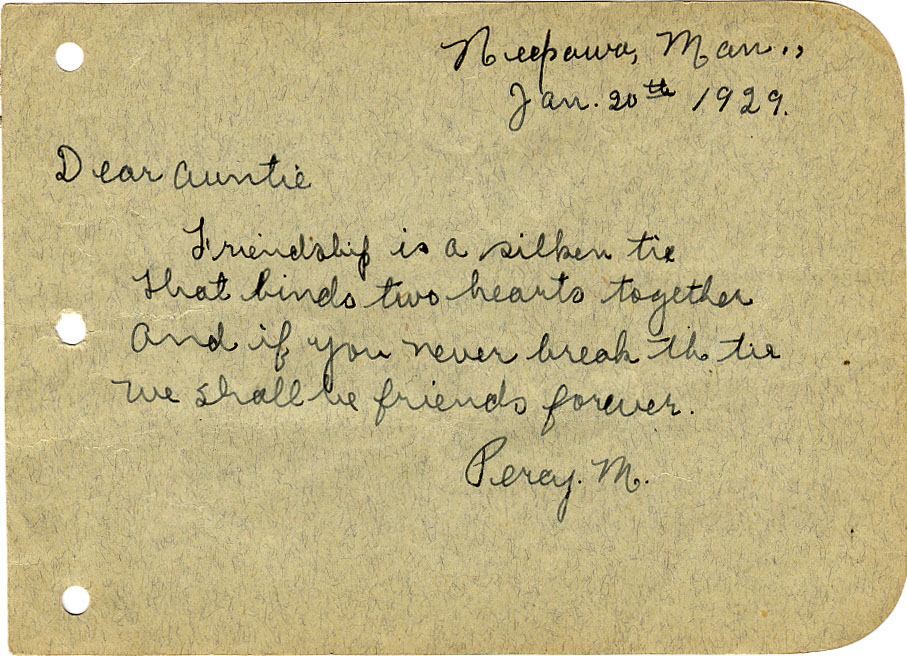 Neepawa, Man.,
Jan. 20th 1929.
Dear Auntie
Friendship is a silken tie
that binds two hearts together
And if you never break the tie
we shall be friends forever.
Percy. M.